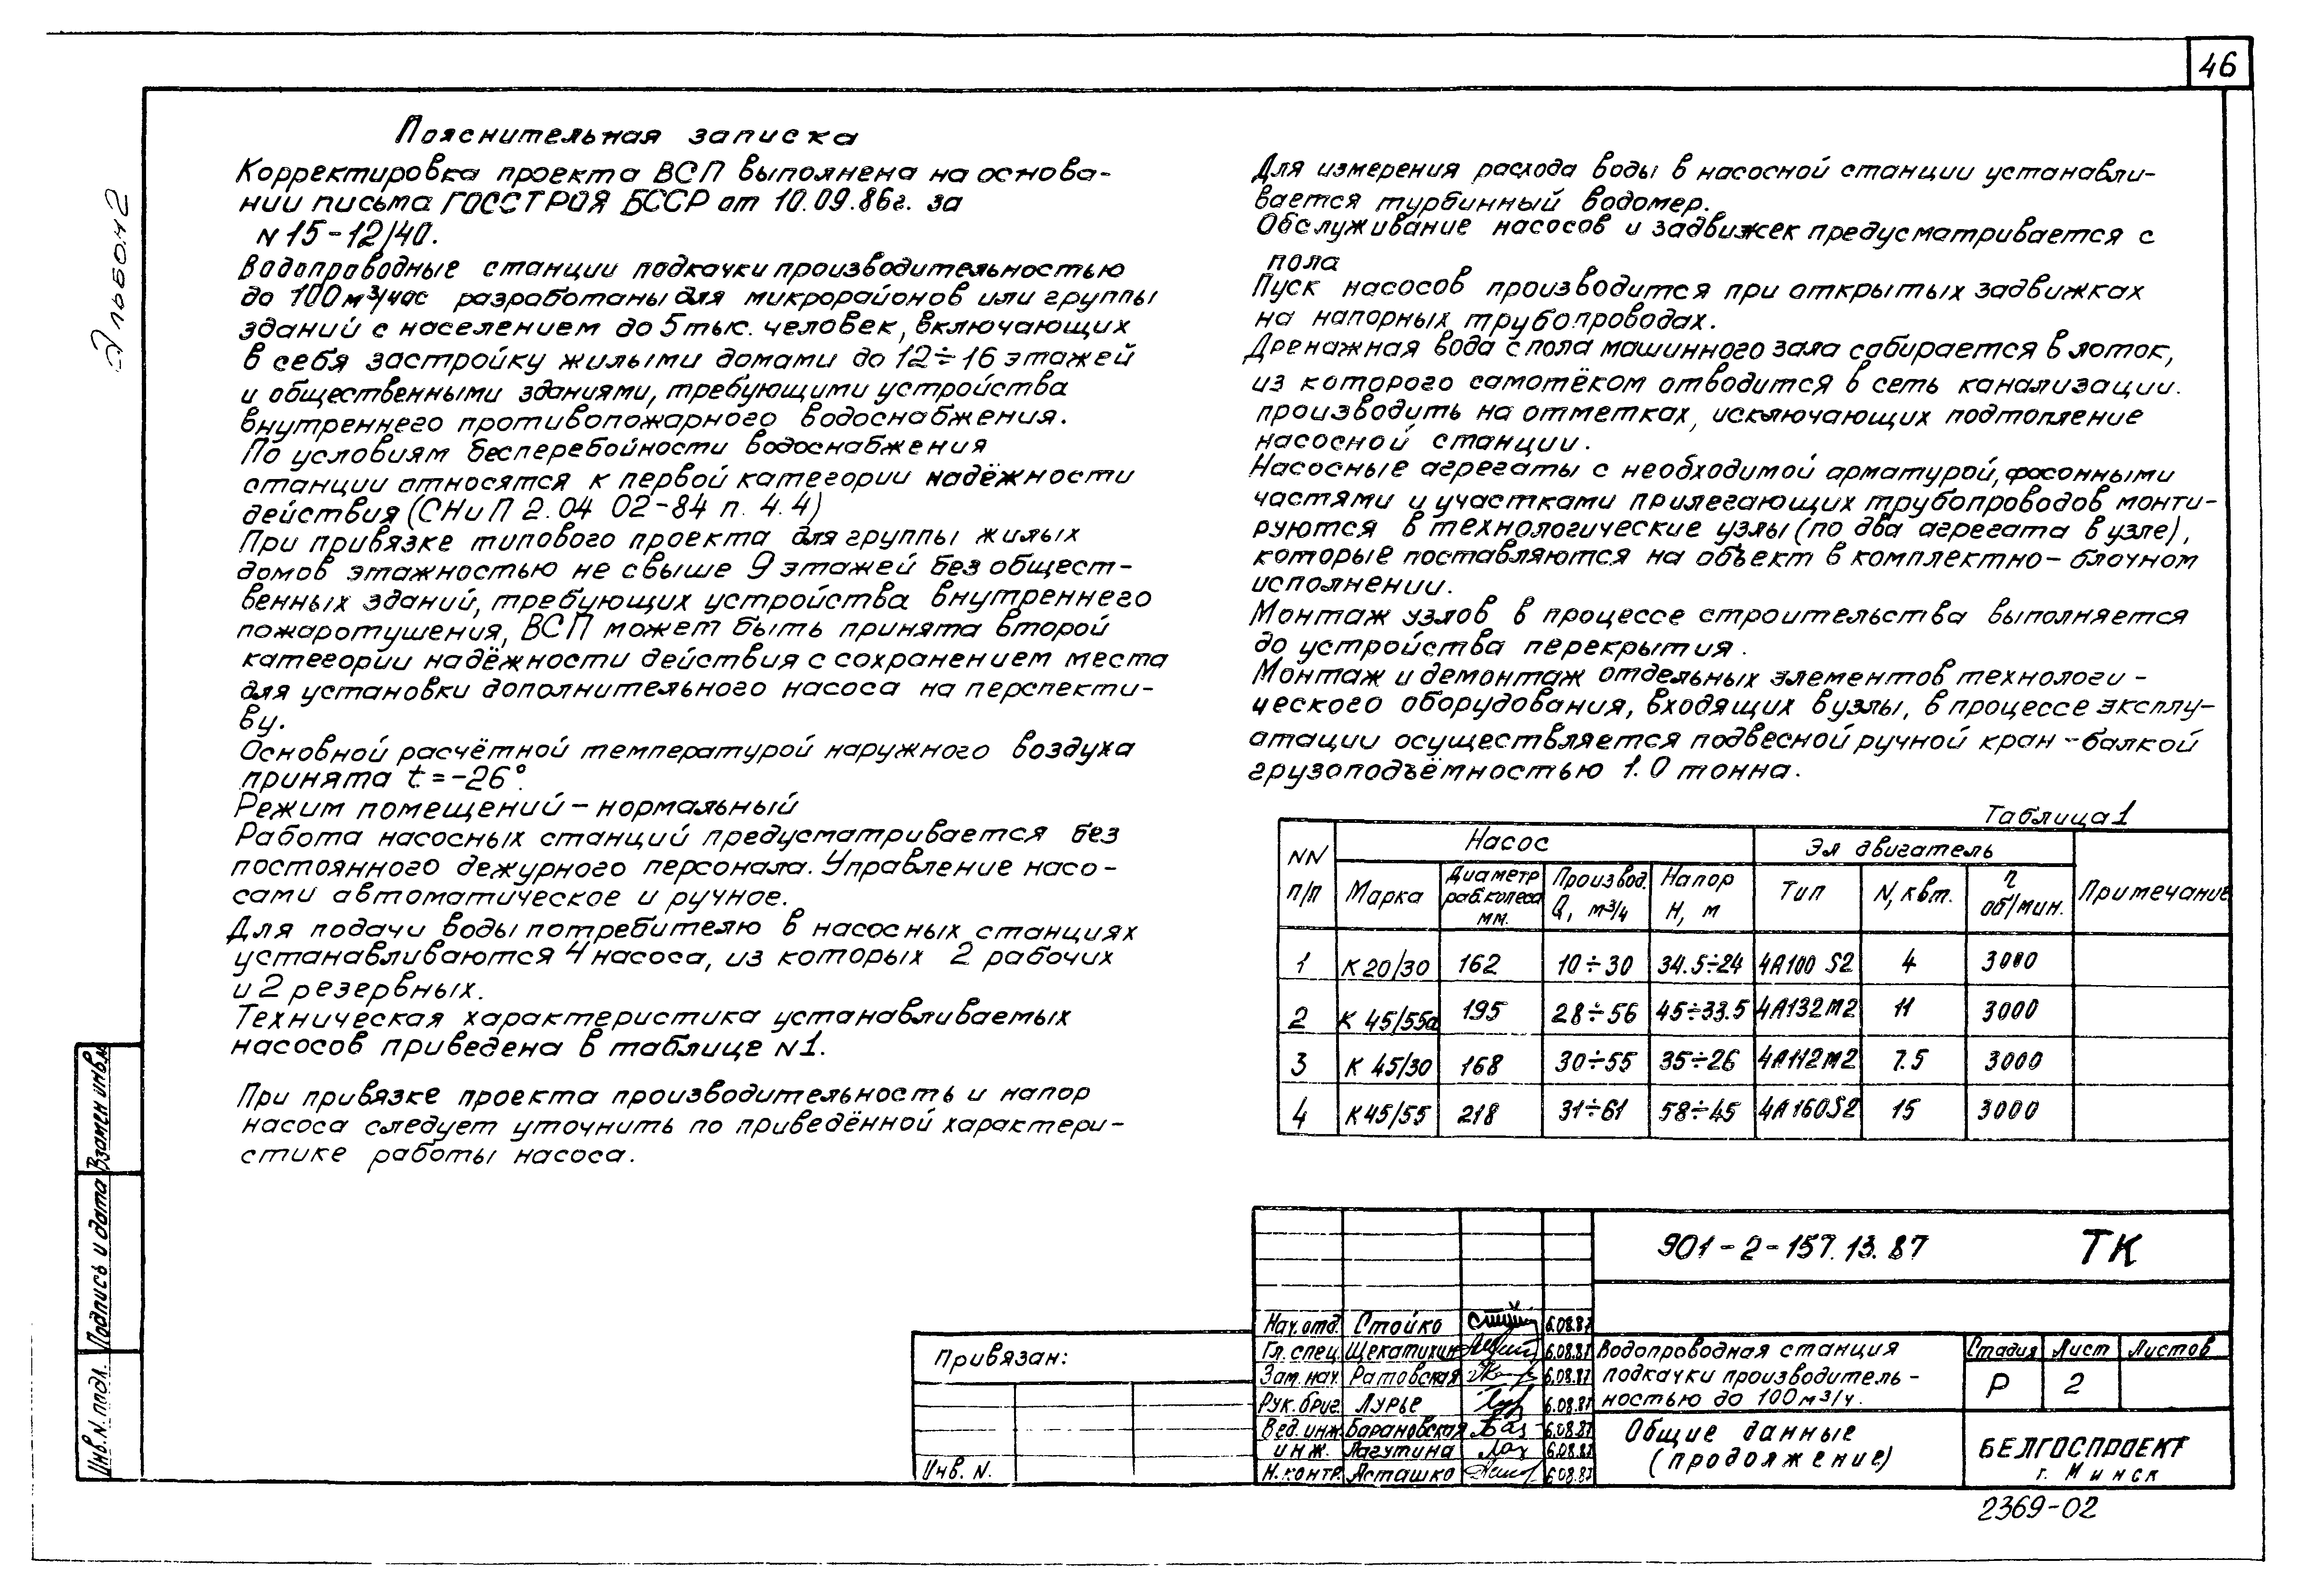 46
Альбом 2
Пояснительная записка
Корректировка проекта ВСП выполнена на основа-
нии письма ГОССТРОЯ БССР от 10.09.86г. за
N 15-12/40.
Водопроводные станции подкачки производительностью
до 100 м³/час разработаны для микрорайонов или группы
зданий с населением до 5 тыс. человек, включающих
в себя застройку жилыми домами до 12÷16 этажей
и общественными зданиями, требующими устройства
внутреннего противопожарного водоснабжения.
По условиям бесперебойности водоснабжения
станции относятся к первой категории надёжности
действия (СНиП 2.04 02-84 п. 4.4)
При привязке типового проекта для группы жилых
домов этажностью не свыше 9 этажей без общест-
венных зданий, требующих устройства внутреннего
пожаротушения, ВСП может быть принята второй
категории надёжности действия с сохранением места
для установки дополнительного насоса на перспекти-
ву.
Основной расчётной температурой наружного воздуха
принята t=-26°.
Режим помещений - нормальный
Работа насосных станций предусматривается без
постоянного дежурного персонала. Управление насо-
сами автоматическое и ручное.
Для подачи воды потребителю в насосных станциях
устанавливаются 4 насоса, из которых 2 рабочих
и 2 резервных.
Техническая характеристика устанавливаемых
насосов приведена в таблице N1.
При привязке проекта производительность и напор
насоса следует уточнить по приведённой характери-
стике работы насоса.
Для измерения расхода воды в насосной станции устанавли-
вается турбинный водомер.
Обслуживание насосов и задвижек предусматривается с
пола
Пуск насосов производится при открытых задвижках
на напорных трубопроводах.
Дренажная вода с пола машинного зала собирается в лоток,
из которого самотёком отводится в сеть канализации.
производить на отметках, исключающих подтопление
насосной станции.
Насосные агрегаты с необходимой арматурой, фасонными
частями и участками прилегающих трубопроводов монти-
руются в технологические узлы (по два агрегата в узле),
которые поставляются на объект в комплектно-блочном
исполнении.
Монтаж узлов в процессе строительства выполняется
до устройства перекрытия.
Монтаж и демонтаж отдельных элементов технологи-
ческого оборудования, входящих в узлы, в процессе эксплу-
атации осуществляется подвесной ручной кран-балкой
грузоподъёмностью 1.0 тонна.
Таблица 1
NN п/п Насос Эл двигатель Примечание
Марка Диаметр раб.колеса мм. Производ. Q, м³/ч Напор Н, м Тип N, квт. n об/мин.
1 К 20/30 162 10÷30 34.5÷24 4А100 S2 4 3000
2 К 45/55а 195 28÷56 45÷33.5 4А132М2 11 3000
3 К 45/30 168 30÷55 35÷26 4А112М2 7.5 3000
4 К45/55 218 31÷61 58÷45 4А160S2 15 3000
901-2-157.13.87 ТК
Нач.отд. Стойко 6.08.87
Гл.спец. Щекатихин 6.08.87
Зам.нач. Ратовская 6.08.87
Рук.бриг. Лурье 6.08.87
Вед.инж. Барановская 6.08.87
инж. Лагутина 6.08.87
Н.контр. Асташко 6.08.87
Водопроводная станция
подкачки производитель-
ностью до 100 м³/ч.
Стадия Лист Листов
Р 2
Общие данные
(продолжение)
БЕЛГОСПРОЕКТ
г. Минск
Привязан:
Инв. N.
Взамен инв.N
Подпись и дата
Инв.N.подл.
2369-02